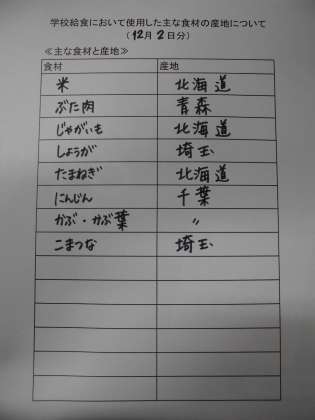 学校給食において使用した主な食材の産地について
(12月2日分)
≪主な食材と産地≫
食材 産地
米 北海道
ぶた肉 青森
じゃがいも 北海道
しょうが 埼玉
たまねぎ 北海道
にんじん 千葉
かぶ・かぶ葉 〃
こまつな 埼玉